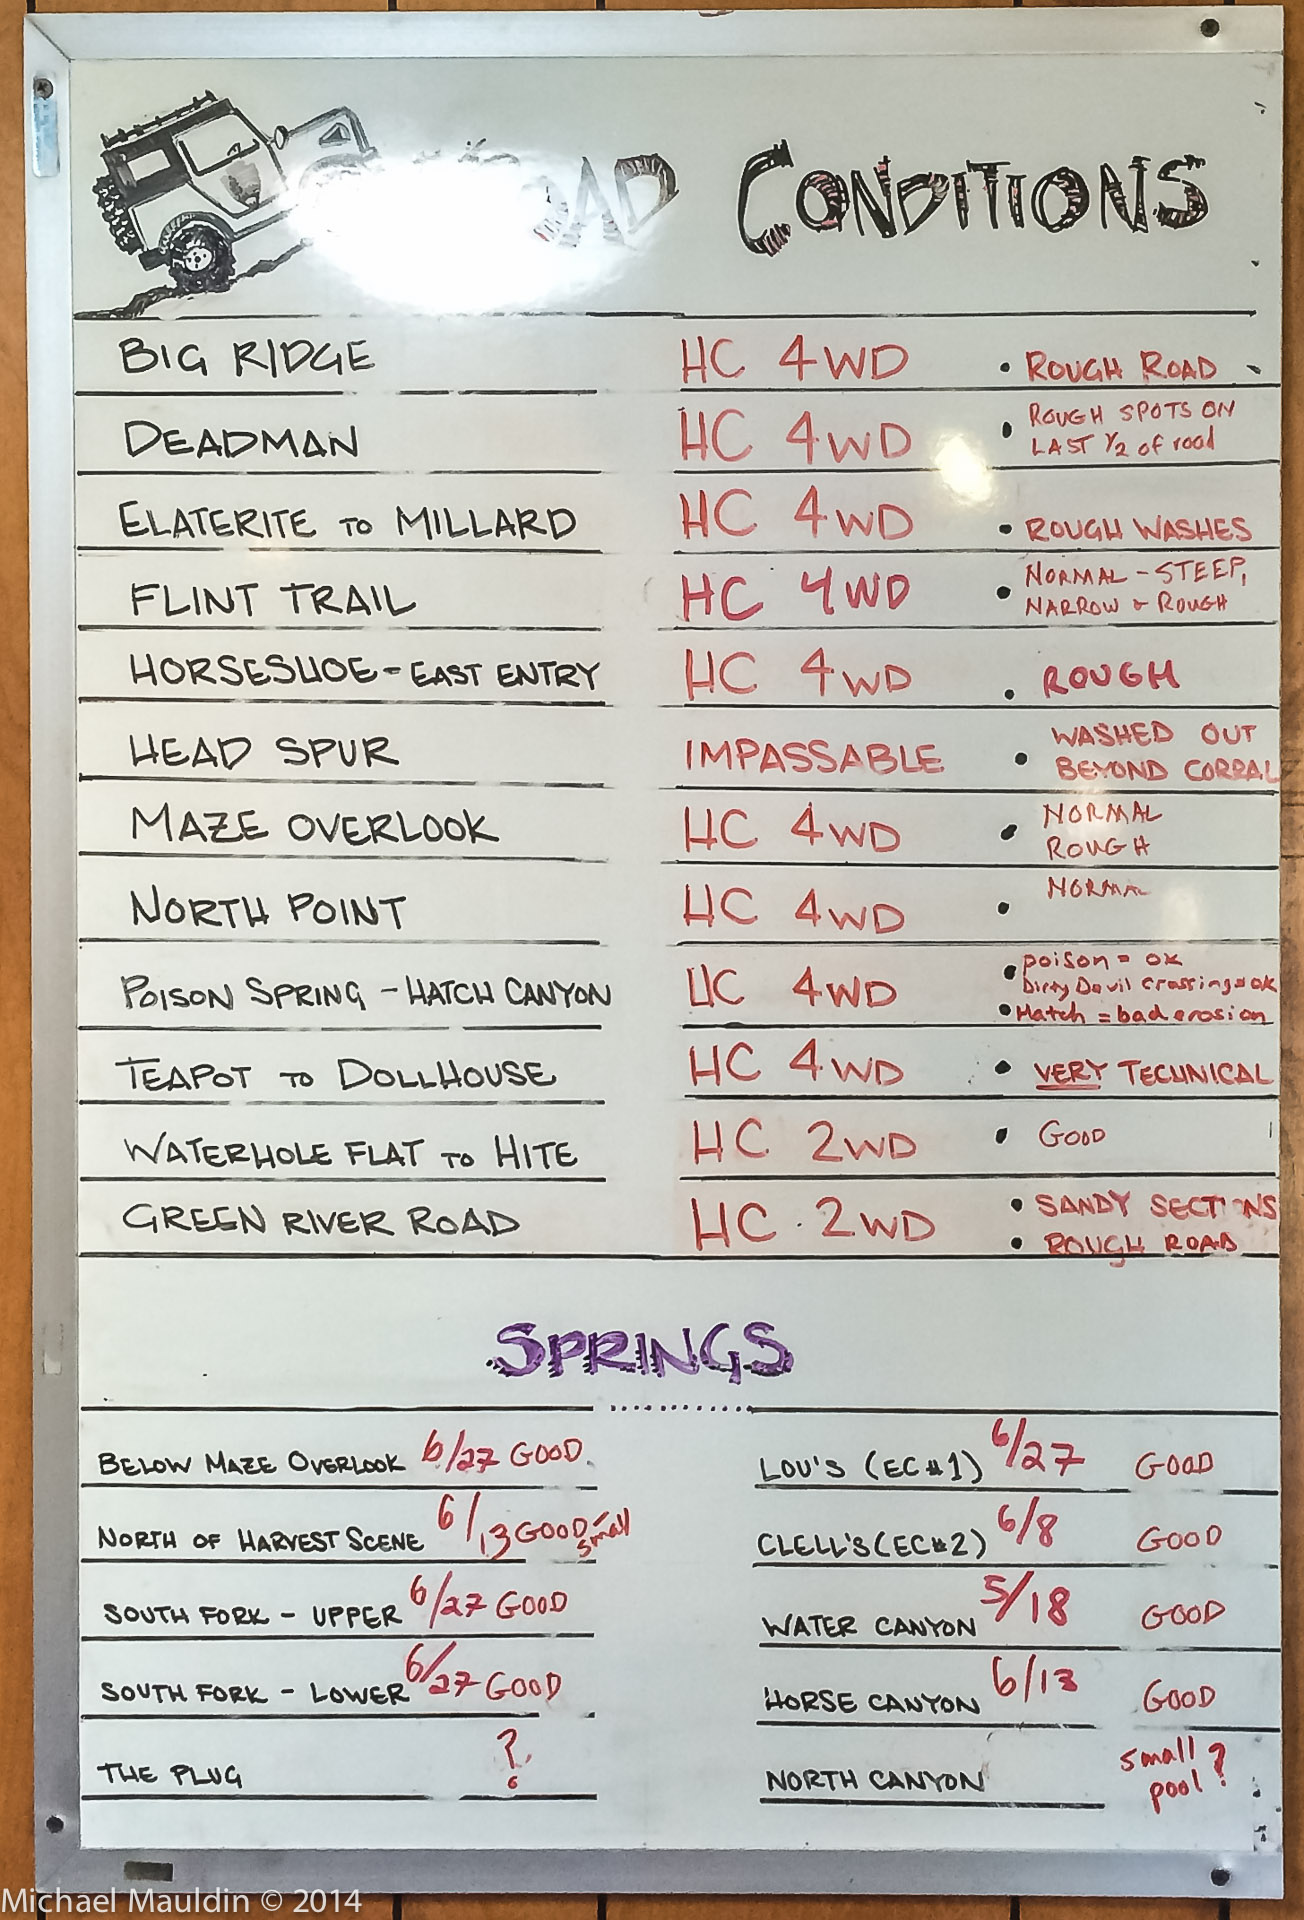 CONDITIONS
BIG RIDGE HC 4WD • ROUGH ROAD
DEADMAN HC 4WD • ROUGH SPOTS ON
LAST 1/2 of road
ELATERITE TO MILLARD HC 4WD • ROUGH WASHES
FLINT TRAIL HC 4WD • NORMAL - STEEP,
NARROW & ROUGH
HORSESHOE - EAST ENTRY HC 4WD • ROUGH
HEAD SPUR IMPASSABLE • WASHED OUT
BEYOND CORRAL
MAZE OVERLOOK HC 4WD • NORMAL
ROUGH
NORTH POINT HC 4WD • NORMAL
POISON SPRING - HATCH CANYON HC 4WD • poison = ok
Dirty Devil crossing = ok
• Hatch = bad erosion
TEAPOT TO DOLLHOUSE HC 4WD • VERY TECHNICAL
WATERHOLE FLAT TO HITE HC 2WD • GOOD
GREEN RIVER ROAD HC 2WD • SANDY SECTIONS
• ROUGH ROAD
SPRINGS
BELOW MAZE OVERLOOK 6/27 GOOD
NORTH OF HARVEST SCENE 6/13 GOOD - small
SOUTH FORK - UPPER 6/27 GOOD
SOUTH FORK - LOWER 6/27 GOOD
THE PLUG ?
LOU'S (EC#1) 6/27 GOOD
CLELL'S (EC#2) 6/8 GOOD
WATER CANYON 5/18 GOOD
HORSE CANYON 6/13 GOOD
NORTH CANYON small pool ?
Michael Mauldin © 2014